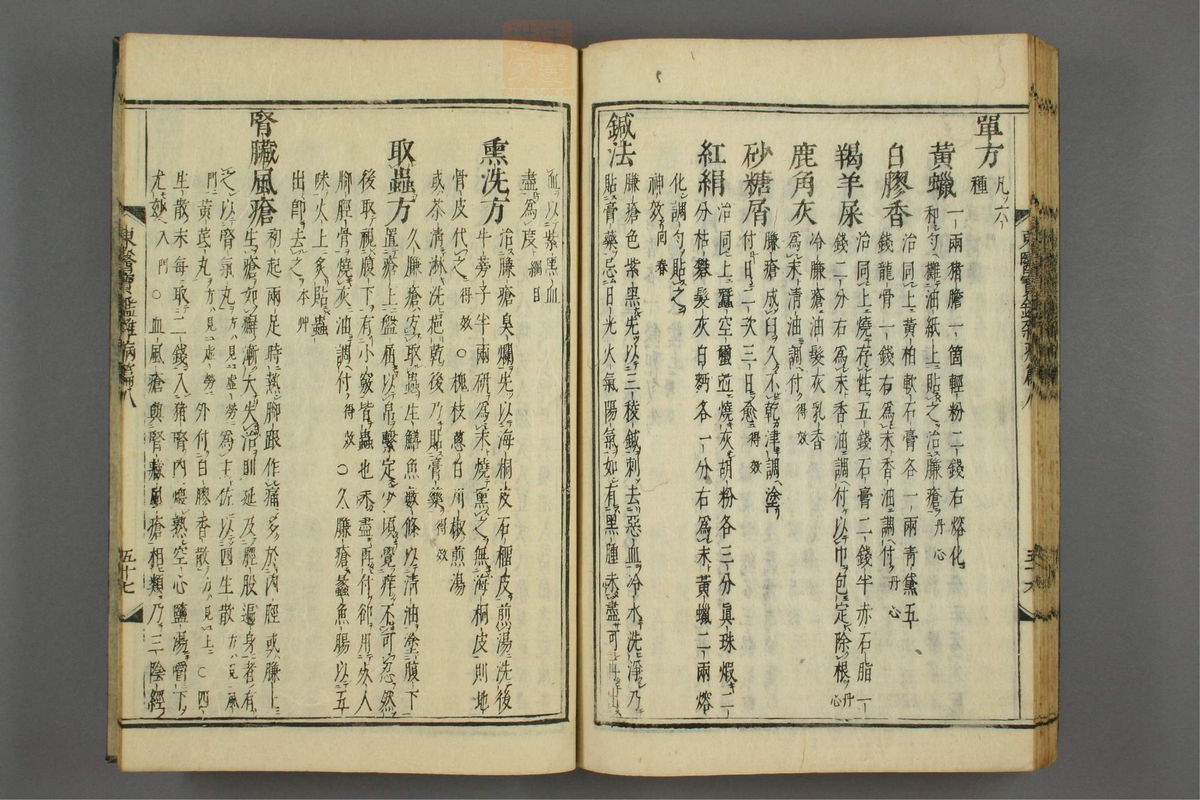 單方 凡六種
黃蠟 一兩猪膽一箇輕粉二錢右熔化
和勻攤油紙上貼之治臁瘡丹心
白膠香 治同上黃柏軟石膏各一兩青黛五
錢龍骨一錢右爲末香油調付丹心
羯羊屎 治同上燒存性五錢石膏二錢半赤石脂一
錢二分右爲末香油調付以巾包定除根丹心
鹿角灰 冷臁瘡油髮灰乳香
爲末清油調付得效
砂糖屑 臁瘡成臼久不乾津調塗
付日二次三日愈得效
紅絹 治同上蠶空
燒灰胡粉各三分眞珠煆二
分枯礬髮灰白麪各一分右爲末黃蠟二兩熔
化調勻貼之
神效同春
鍼法 臁瘡色紫黑先以三稜鍼刺去惡血冷水洗淨乃
貼膏藥忌日光火氣陽氣如有黑腫未盡可再出
血以紫黑血
盡爲度綱目
熏洗方 治臁瘡臭爛先以海桐皮石榴皮煎湯洗後
牛蒡子半兩研爲末燒熏之無海桐皮則地
骨皮代之得效○槐枝葱白川椒煎湯
或茶清淋洗挹乾後乃貼膏藥得效
取蟲方 久臁瘡宜取蟲生鱔魚數條以清油塗腹下
置瘡上盤屈以帛繫定少頃覺痒不可忍然
後取視腹下有小竅皆蟲也未盡再付却用灰人
脚脛骨燒灰油調付得效○久臁瘡蠡魚腸以五
味火上炙貼蟲
出卽去之本艸
腎臟風瘡 初起兩足時熱脚跟作痛多於內脛或臁上
生瘡如癬漸大失治則延及腿股遍身者有
之以腎氣丸方見虛勞爲主佐以四生散方見風
門黃芪丸方見虛勞外付白膠香散方見上○四
生散末每取二錢入猪腎內煨熟空心鹽湯嚼下
尤妙入門○血風瘡與腎臟風瘡相類乃三陰經
東醫寶鑑雜病篇八
五十七